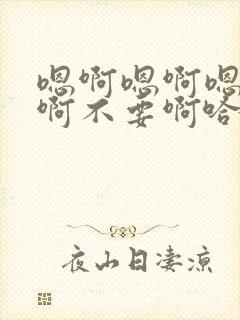 嗯啊嗯啊嗯
啊不要啊哈
夜山日凄凉